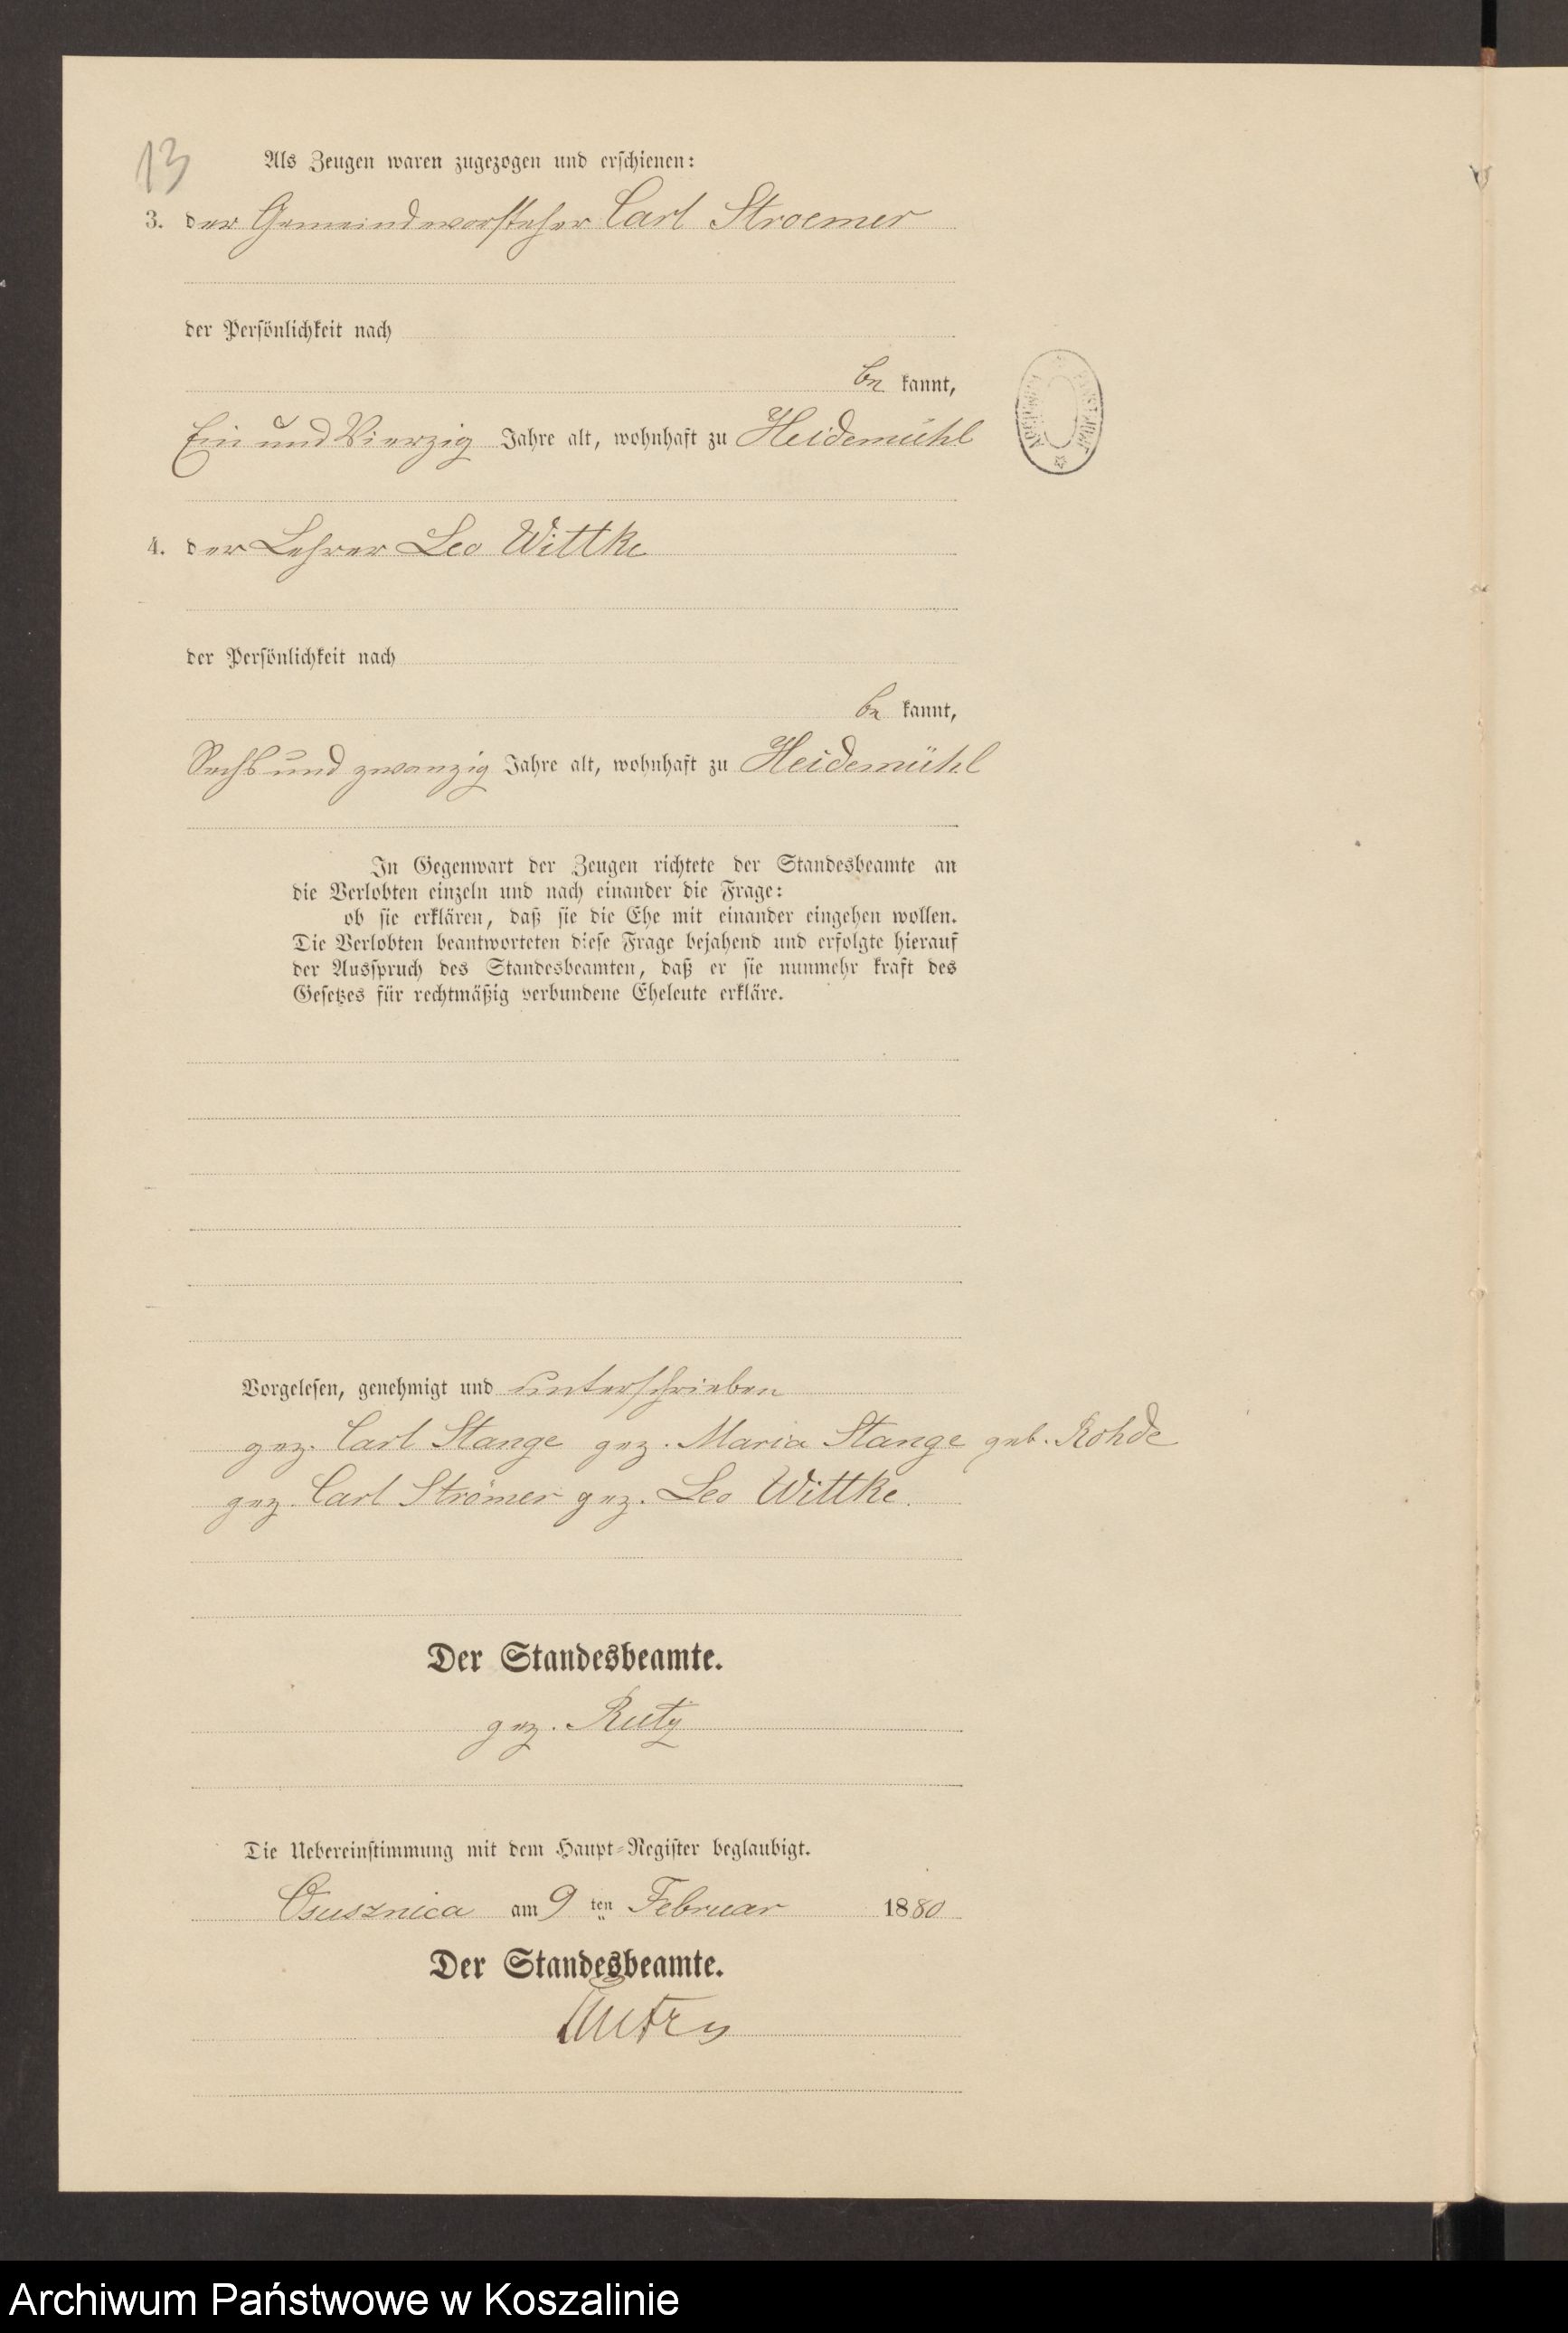 13
Als Zeugen waren zugezogen und erschienen:
3. der Gemeindevorsteher Carl Stroemer
der Persönlichkeit nach
be kannt,
Ein und Vierzig Jahre alt, wohnhaft zu Heidemühl
4. der Lehrer Leo Wittke
der Persönlichkeit nach
be kannt,
Sechs und zwanzig Jahre alt, wohnhaft zu Heidemühl
In Gegenwart der Zeugen richtete der Standesbeamte an
die Verlobten einzeln und nach einander die Frage:
ob sie erklären, daß sie die Ehe mit einander eingehen wollen.
Die Verlobten beantworteten diese Frage bejahend und erfolgte hierauf
der Ausspruch des Standesbeamten, daß er sie nunmehr kraft des
Gesetzes für rechtmäßig verbundene Eheleute erkläre.
Vorgelesen, genehmigt und unterschrieben
gez. Carl Stange gez. Maria Stange geb. Rohde
gez. Carl Strömer gez. Leo Wittke.
Der Standesbeamte.
gez. Rutz
Die Uebereinstimmung mit dem Haupt-Register beglaubigt.
Ossusznica am 9 ten Februar 1880
Der Standesbeamte.
Archiwum Państwowe w Koszalinie